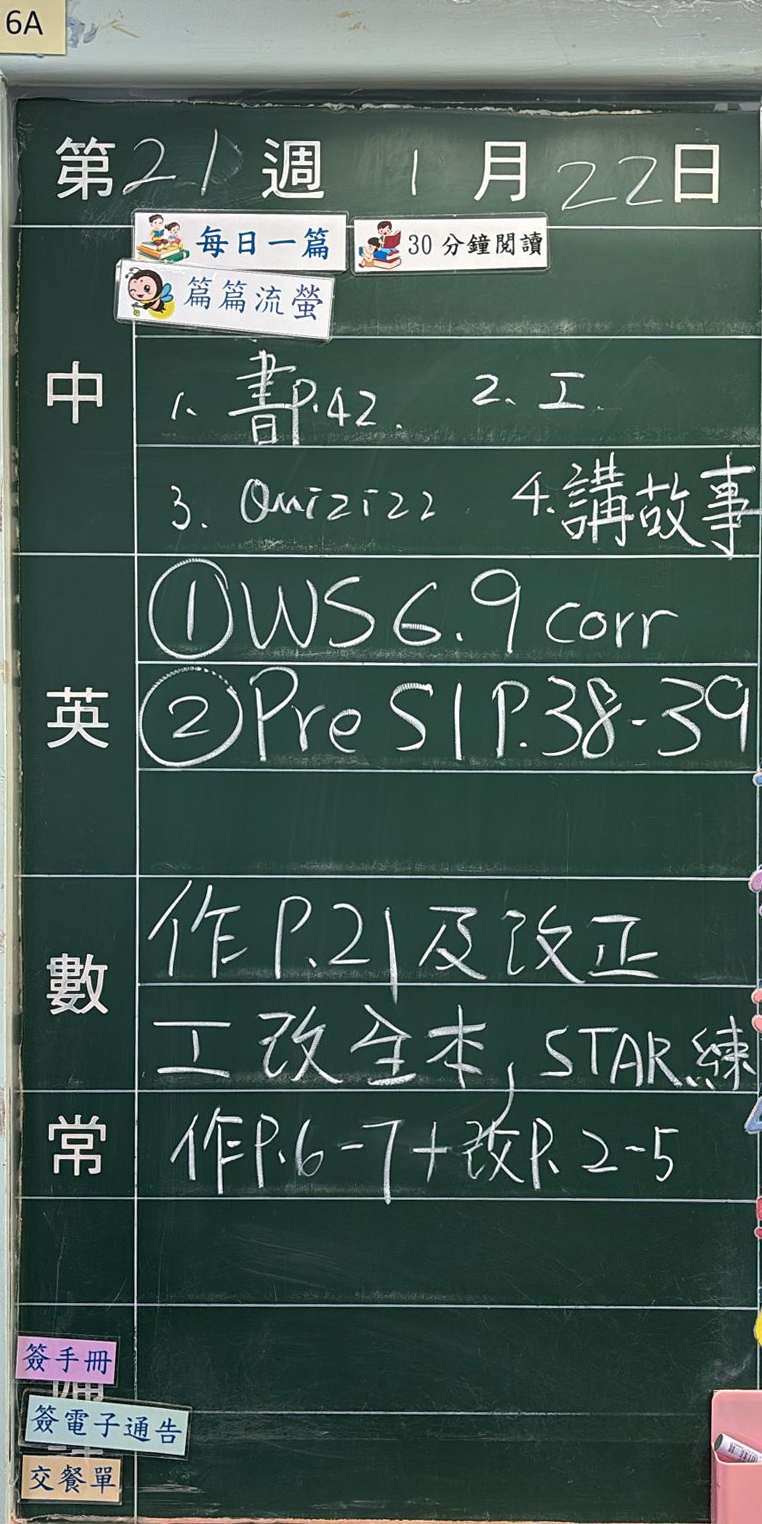 6A
第21週 1月22日
每日一篇 30分鐘閱讀
篇篇流螢
中
1. 書P.42. 2. 工.
3. Quizizz 4. 講故事
英
① WS 6.9 corr
② Pre S1 P.38-39
數
作 P.21 及改正
工改全本, STAR練
常
作P.6-7+改P.2-5
簽手冊
簽電子通告
交餐單